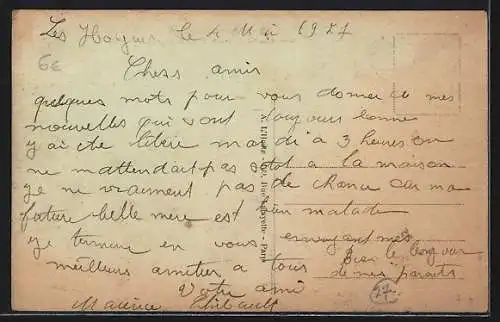 Les le 4 Mai 1927
6e
Chers amis
quelques mots pour vous donner de mes
nouvelles qui vont toujours bonne
j'ai ete libere mardi a 3 heures on
ne m'attendait pas si tot a la maison
je ne vraiment pas de chance car ma
future belle mere est bien malade
je termine en vous envoyant mes
meilleurs amitier a tous bien le bonjour
de mes parents
Votre ami
Maurice Thibault
27